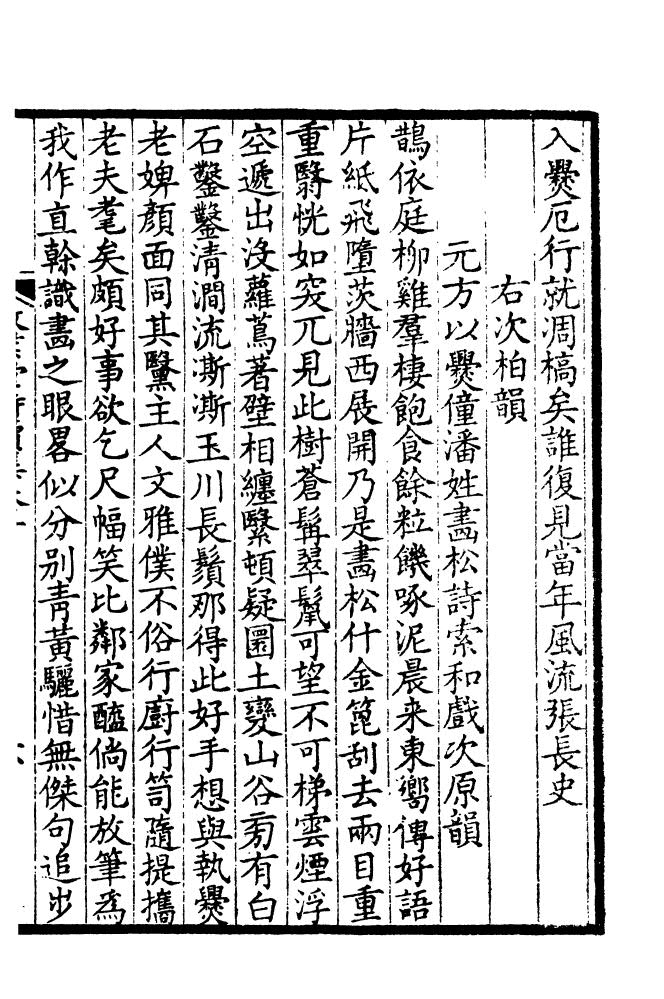 入爨厄行就凋槁矣誰復見當年風流張長史
右次柏韻
元方以爨僮潘姓畫松詩索和戲次原韻
鵲依庭柳雞羣棲飽食餘粒饑啄泥晨来東嚮傳好語
片紙飛墮茨牆西展開乃是畫松什金篦刮去兩目重
重翳恍如突兀見此樹蒼髯翠鬣可望不可梯雲煙浮
空遞出没蘿蔦著壁相纏繄頓疑圜土變山谷旁有白
石鑿鑿清澗流澌澌玉川長鬚那得此好手想與執爨
老婢顔面同其黳主人文雅僕不俗行廚行笥隨提攜
老夫耄矣頗好事欲乞尺幅笑比鄰家醯倘能放筆為
我作直榦識畫之眼畧似分别靑黃驪惜無傑句追步